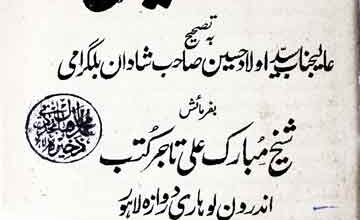 بہ تصحیح
عالیجناب سید اولاد حسین صاحب شاداں بلگرامی
بفرمائش
شیخ مبارک علی تاجر کتب
اندرون لوہاری دروازہ لاہور
ذخیرہ